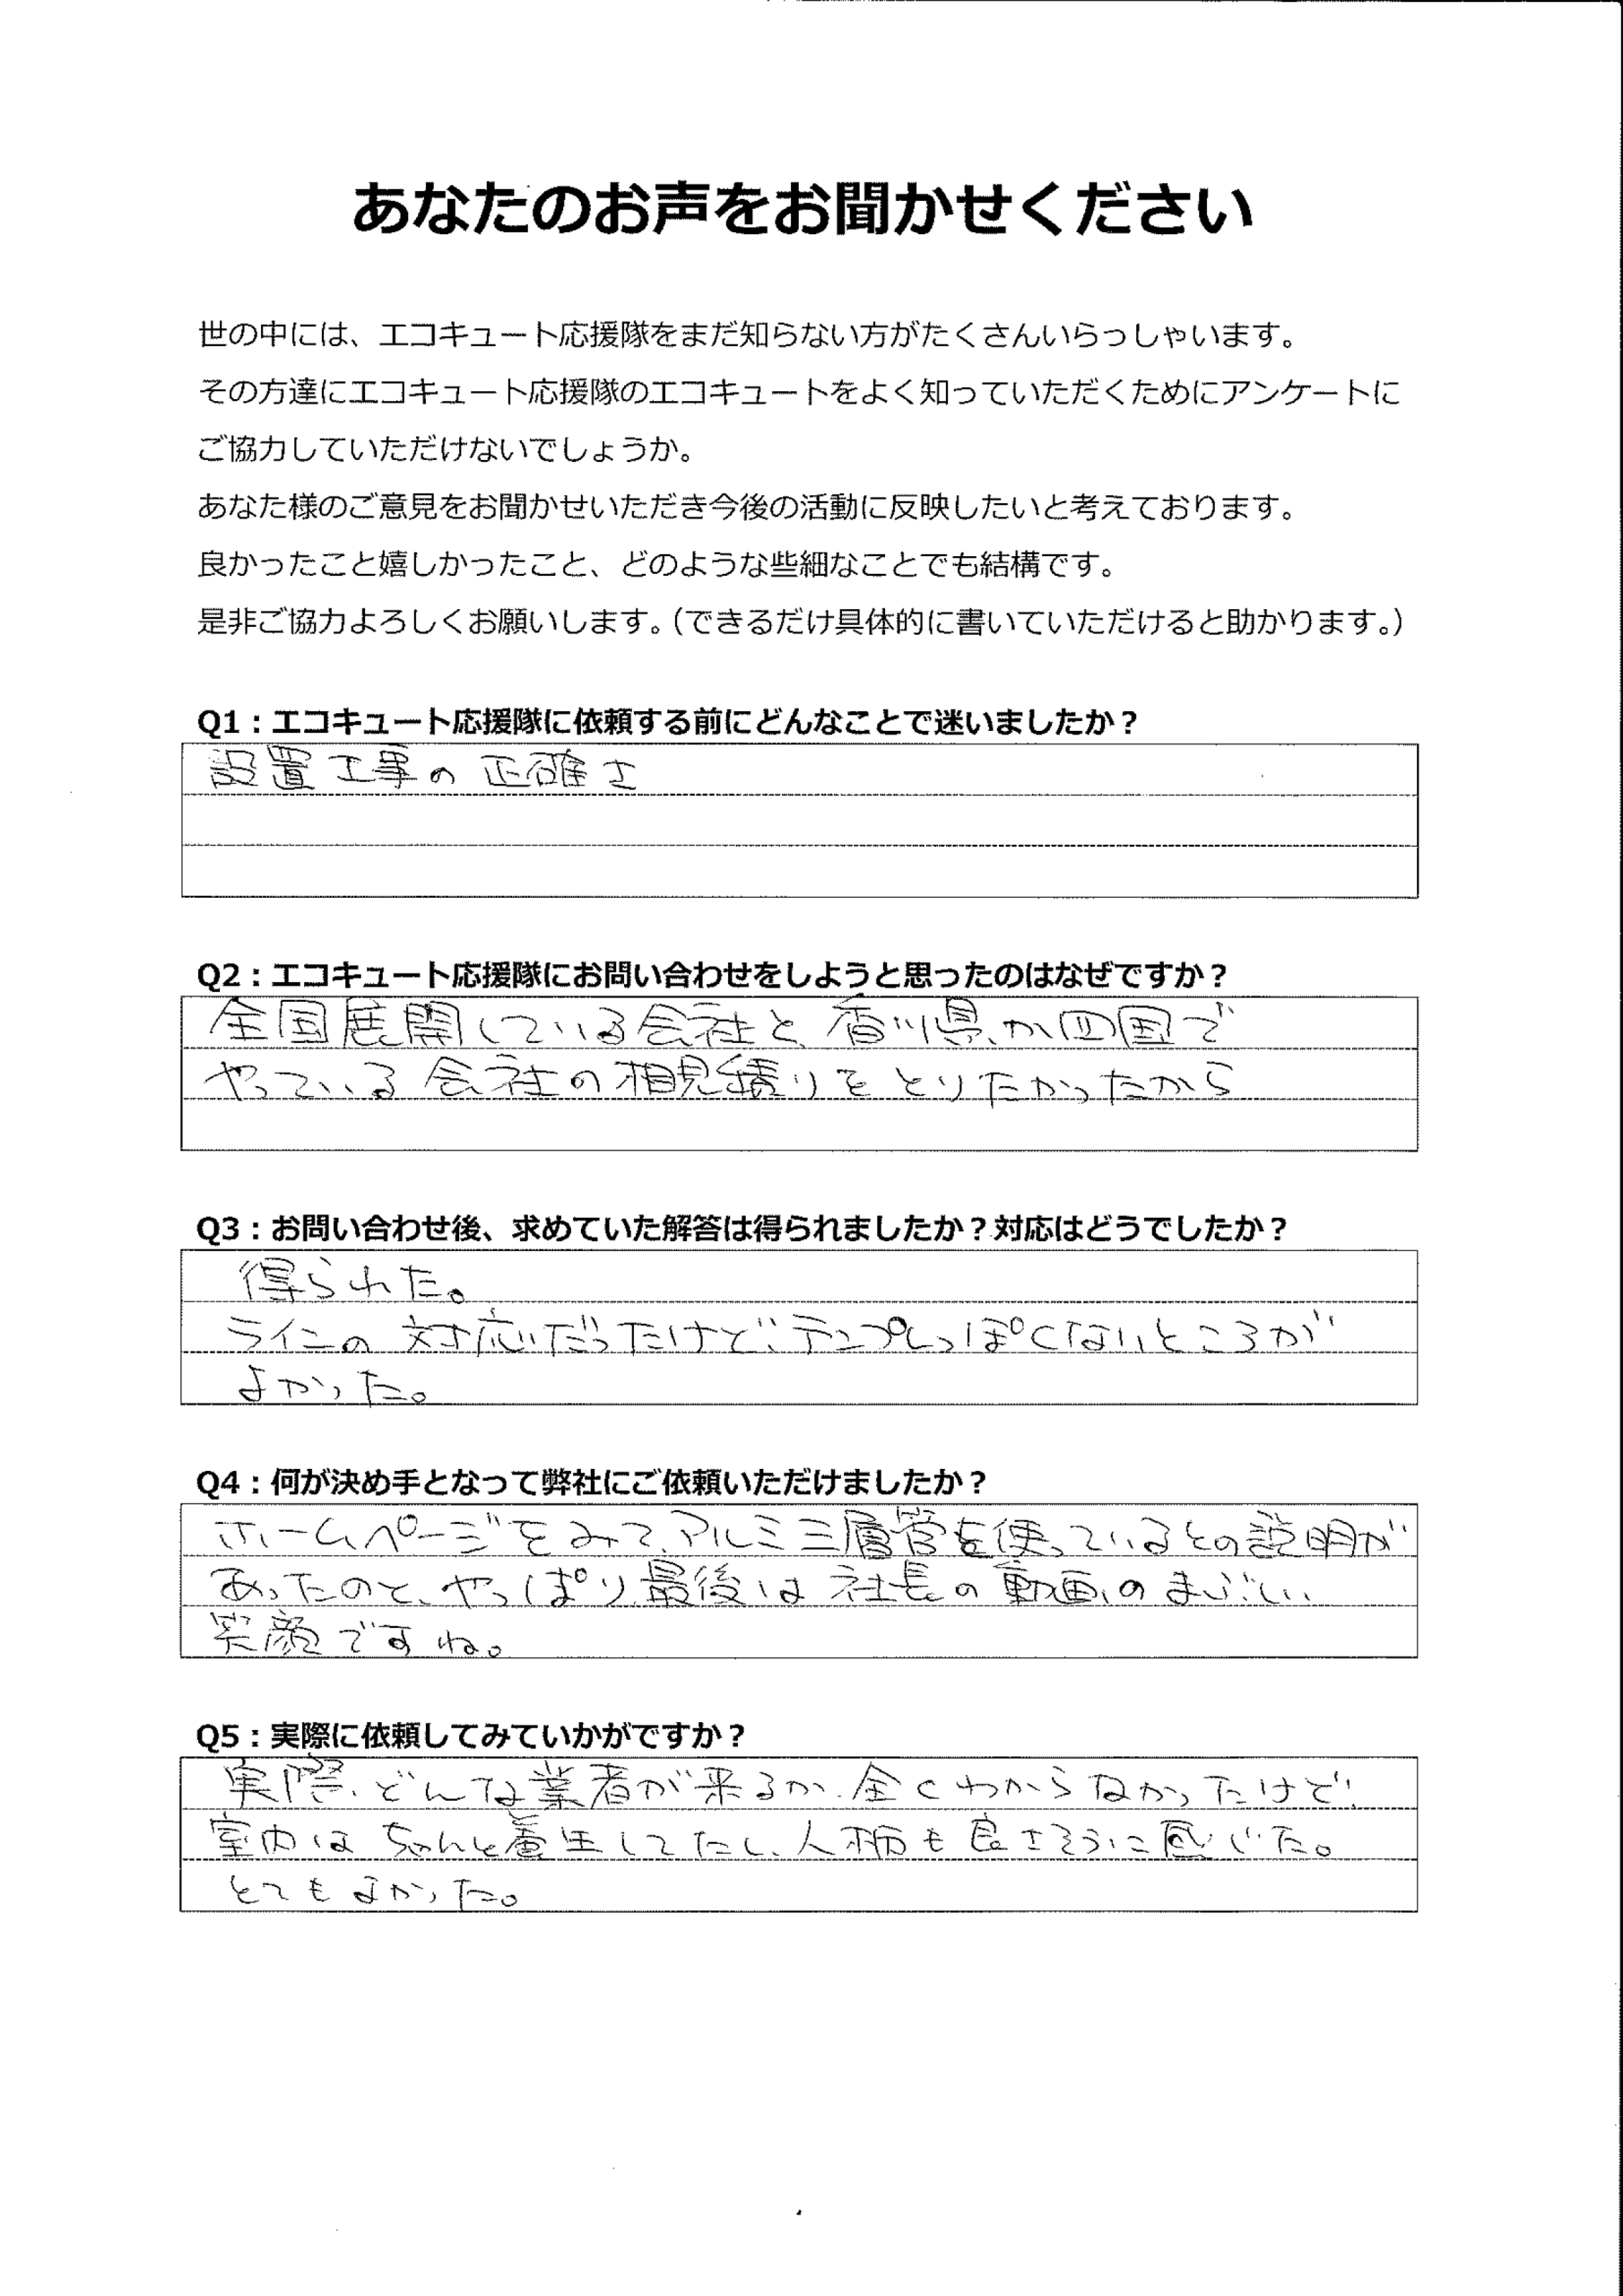 あなたのお声をお聞かせください
世の中には、エコキュート応援隊をまだ知らない方がたくさんいらっしゃいます。
その方達にエコキュート応援隊のエコキュートをよく知っていただくためにアンケートに
ご協力していただけないでしょうか。
あなた様のご意見をお聞かせいただき今後の活動に反映したいと考えております。
良かったこと嬉しかったこと、どのような些細なことでも結構です。
是非ご協力よろしくお願いします。（できるだけ具体的に書いていただけると助かります。）
Q1：エコキュート応援隊に依頼する前にどんなことで迷いましたか？
設置工事の正確さ
Q2：エコキュート応援隊にお問い合わせをしようと思ったのはなぜですか？
全国展開している会社と、香川県か四国で
やっている会社の相見積りをとりたかったから
Q3：お問い合わせ後、求めていた解答は得られましたか？対応はどうでしたか？
得られた。
ラインの対応だったけど、テンプレっぽくないところが
よかった。
Q4：何が決め手となって弊社にご依頼いただけましたか？
ホームページをみて、アルミ三層管を使っているとの説明が
あったのと、やっぱり最後は社長の動画のまぶしい
笑顔ですね。
Q5：実際に依頼してみていかがですか？
実際、どんな業者が来るか、全くわからなかったけど、
室内はちゃんと養生してたし、人柄も良さそうに感じた。
とてもよかった。